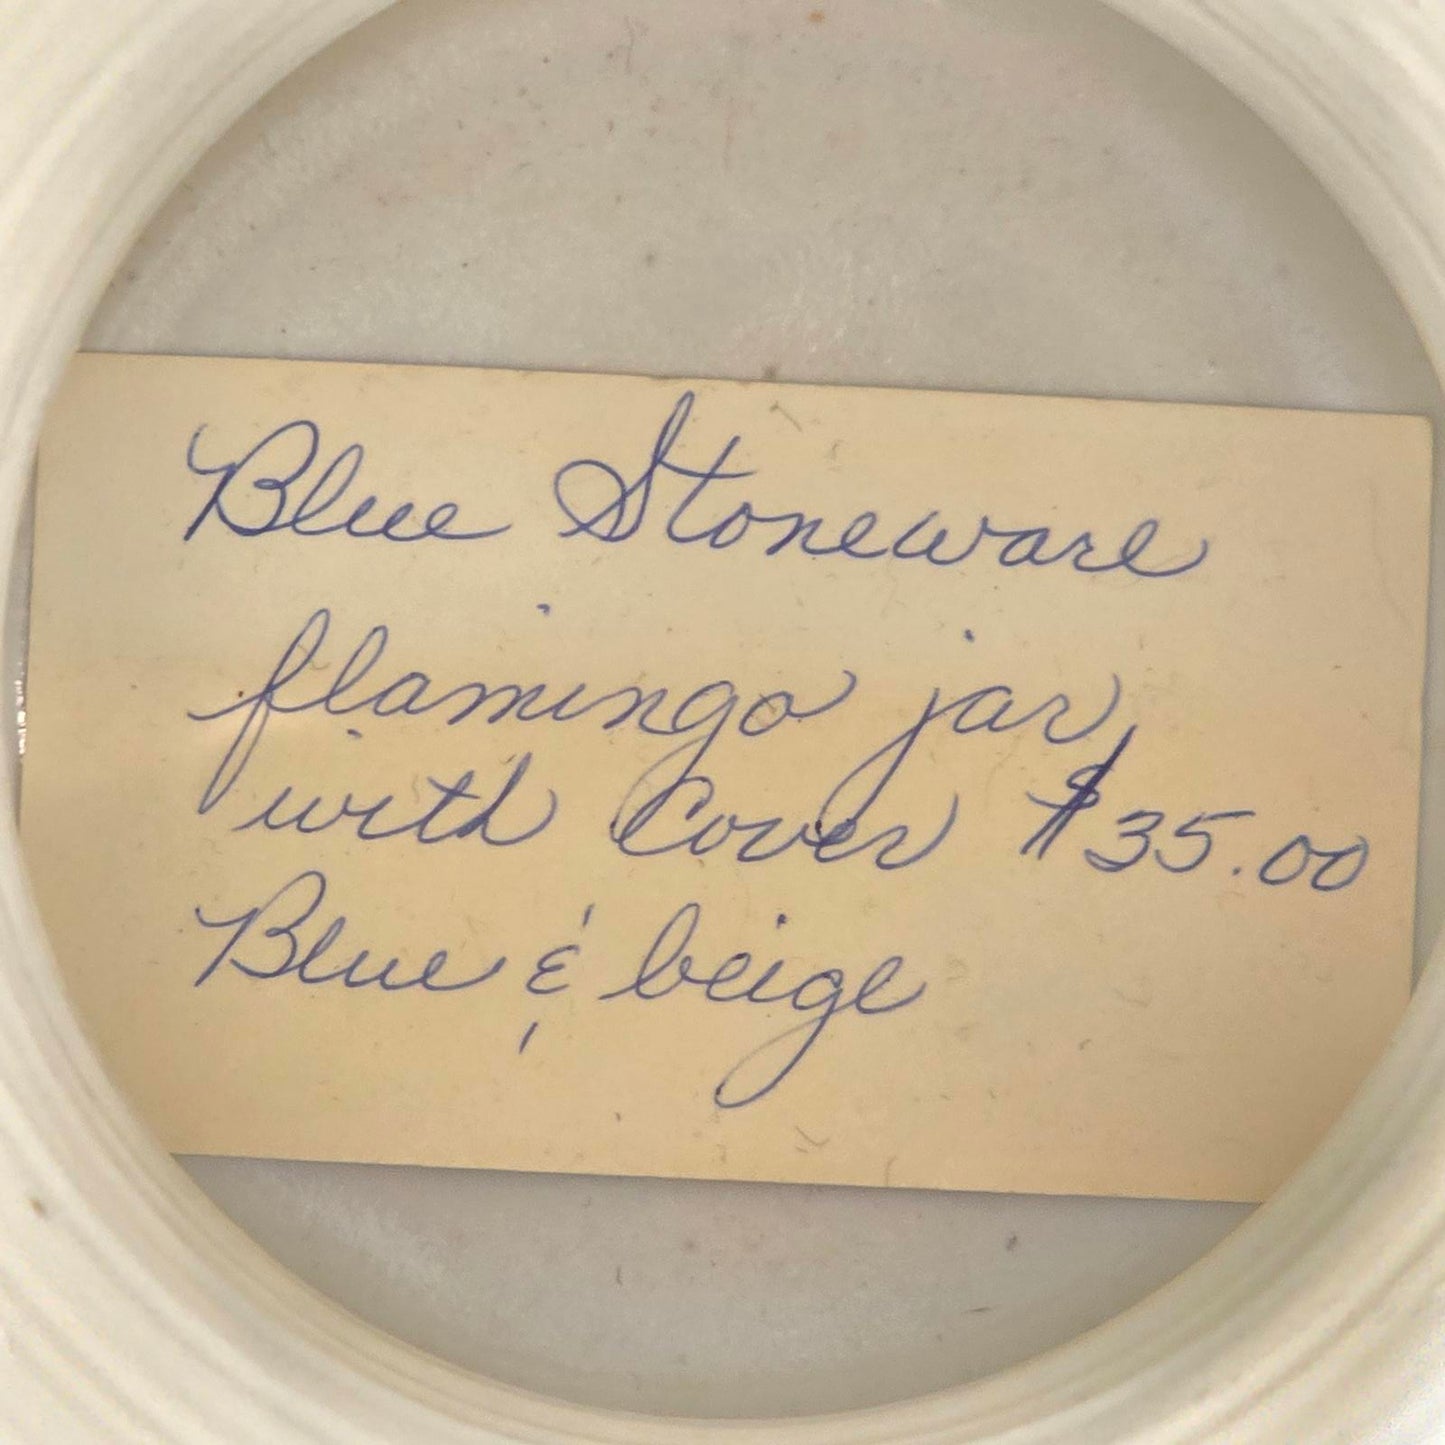 Blue Stoneware
flamingo jar,
with Cover $35.00
Blue & beige